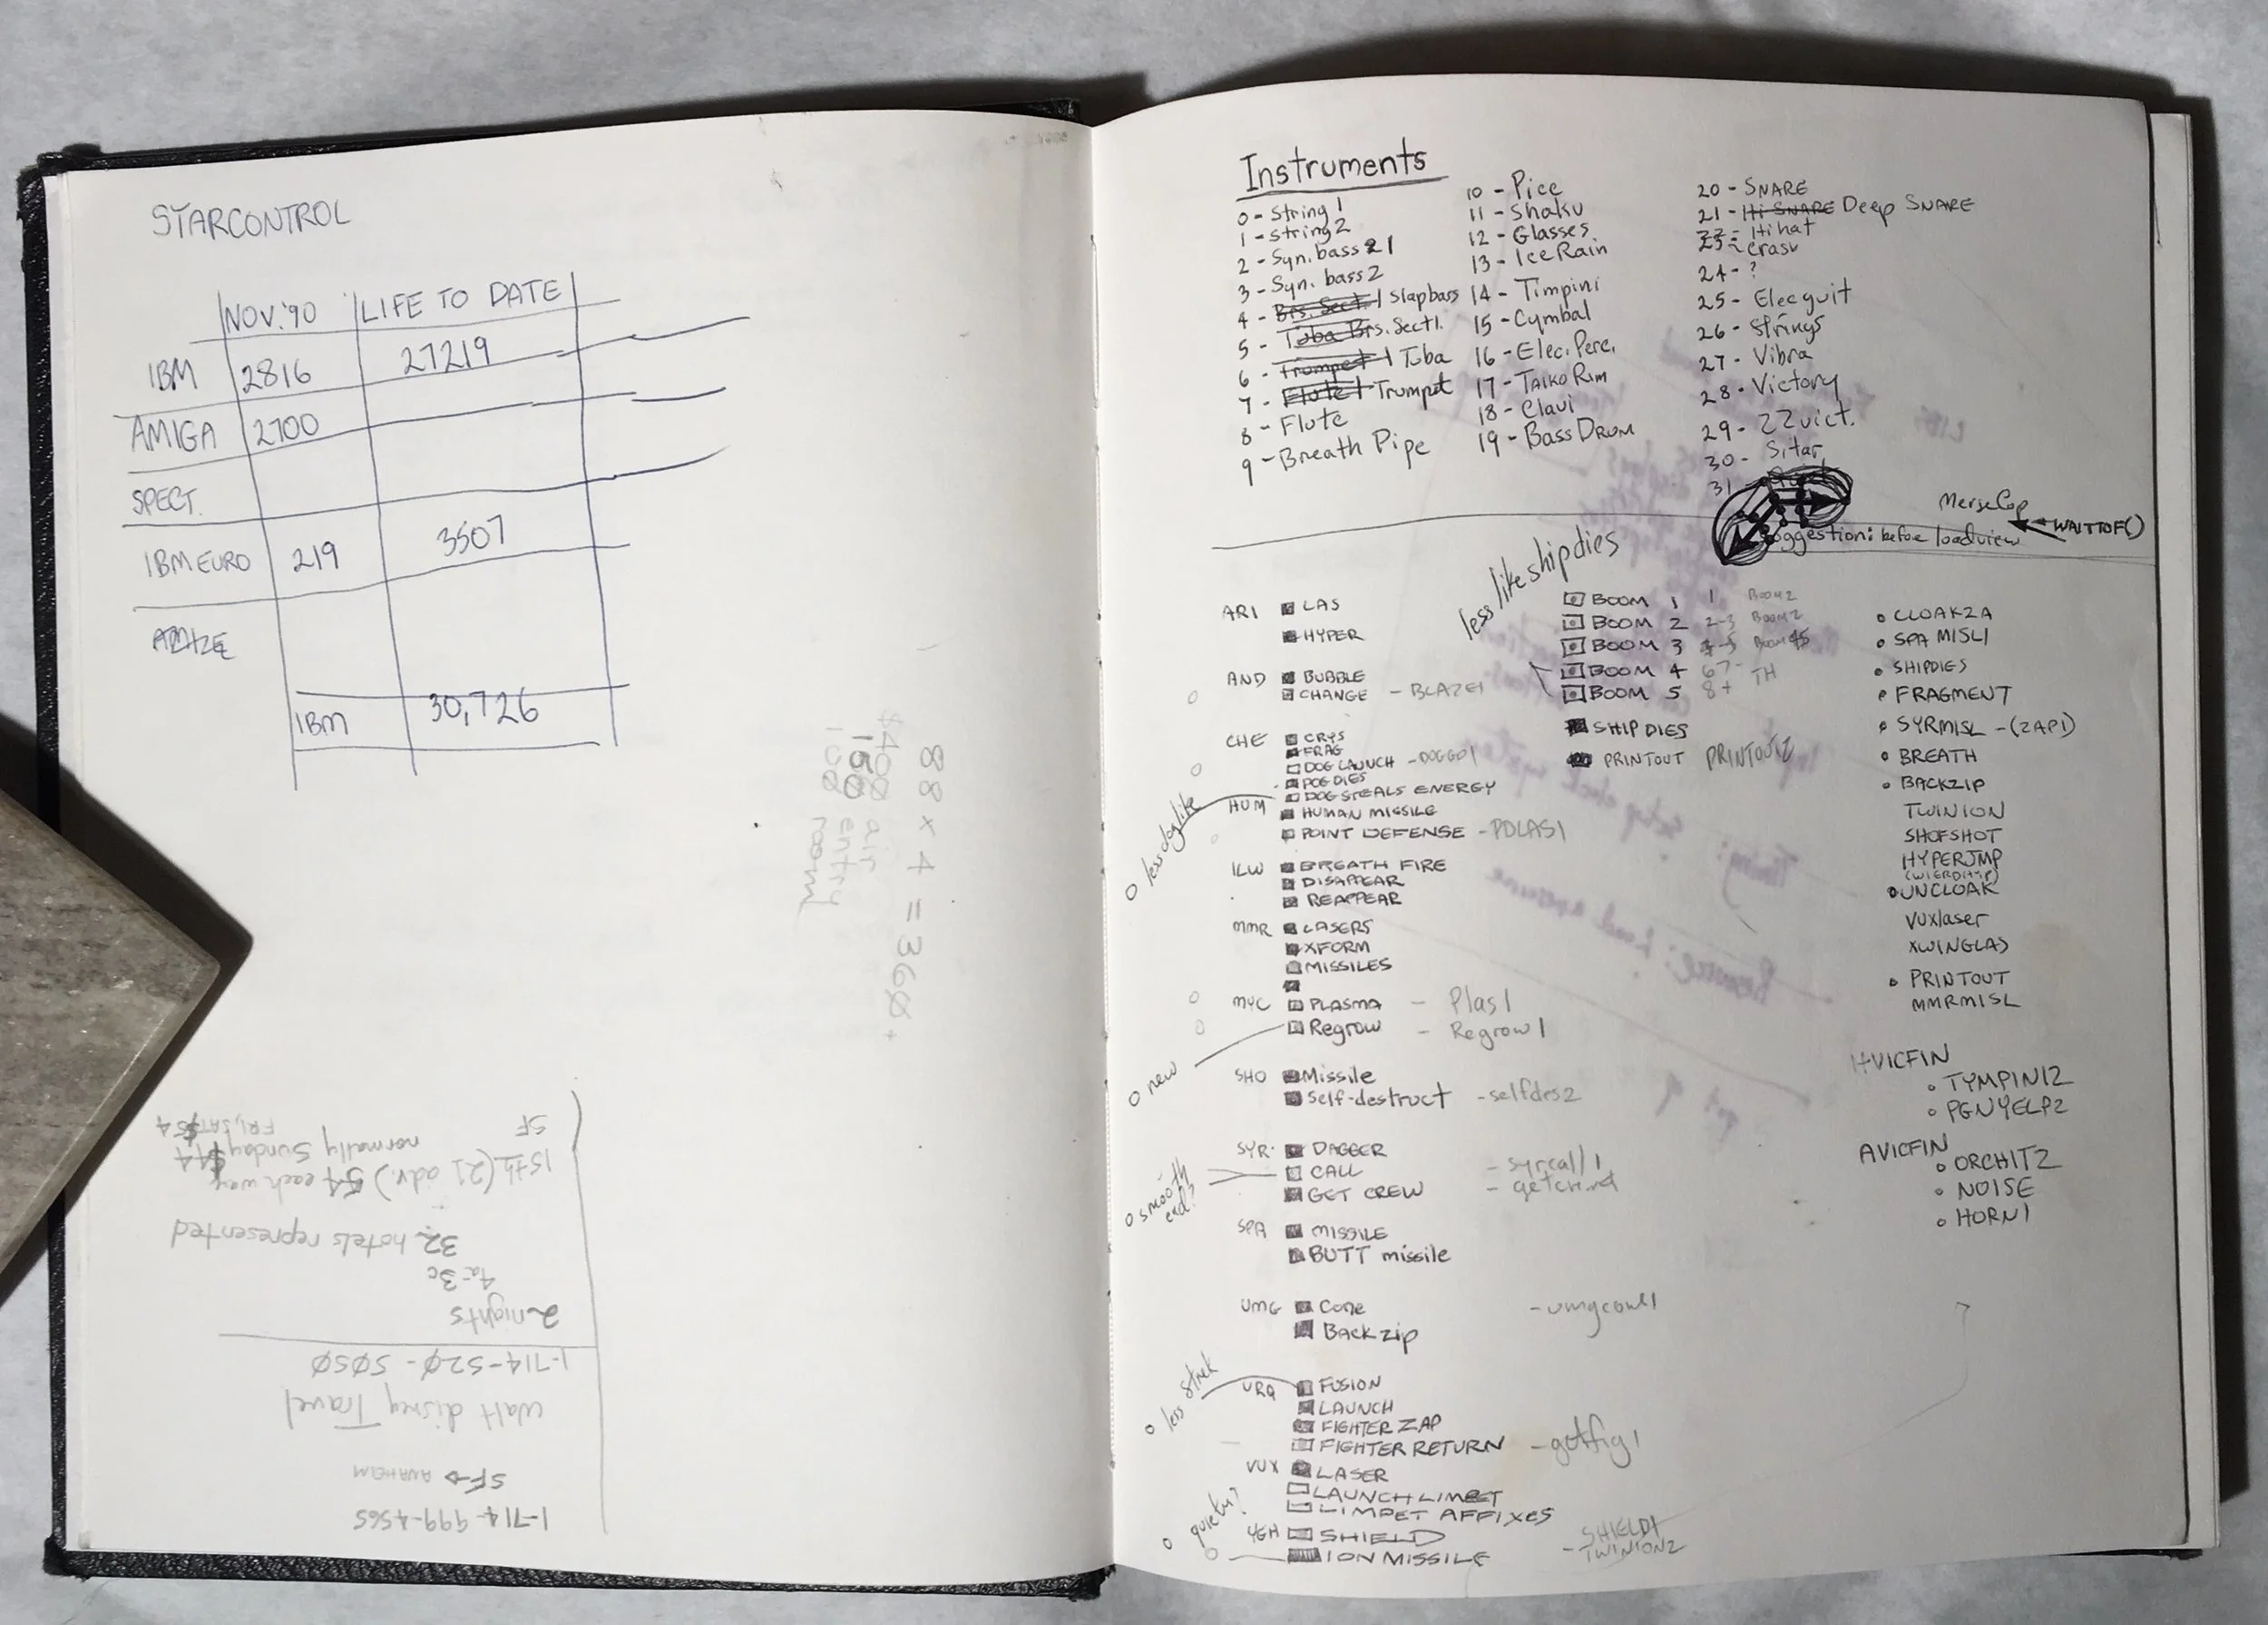 STARCONTROL
NOV.'90 LIFE TO DATE
IBM 2816 27219
AMIGA 2700
SPECT.
IBM EURO 219 3507
IBM 30,726
88 x 4 = 360.
$400 air
150 entry
100 room
1-714-999-4565
SF → ANAHEIM
Walt disney Travel
1-714-520-5050
2 nights
4a-3c
32 hotels represented
15th (21 adv.) 54 each way $44
normally Sunday
SF FRI, SAT $54
Instruments
0 - String 1
1 - String 2
2 - Syn. bass 1
3 - Syn. bass 2
4 - Brs. Sect. 1 Slapbass
5 - Tuba Brs. Sect 1.
6 - Trumpet 1 Tuba
7 - Flute 1 Trumpet
8 - Flute
9 - Breath Pipe
10 - Picc
11 - Shaku
12 - Glasses
13 - Ice Rain
14 - Timpini
15 - Cymbal
16 - Elec. Perc.
17 - TAIKO RIM
18 - Clavi
19 - BASS DRUM
20 - SNARE
21 - Hi SNARE Deep SNARE
22 - Hihat
23 - Crash
24 - ?
25 - Elec guit
26 - Strings
27 - Vibra
28 - Victory
29 - 22vict.
30 - Sitar
31 -
MerseCop
WAITTOF()
suggestion: before loadview
ARI LAS
HYPER
AND BUBBLE
CHANGE - BLAZE1
CHE CRYS
FRAG
DOG LAUNCH - DOGGO1
DOG DIES
DOG STEALS ENERGY
o less doglike
HUM HUMAN MISSILE
POINT DEFENSE - PDLAS1
ILW BREATH FIRE
DISAPPEAR
REAPPEAR
MMR LASERS
XFORM
MISSILES
MYC PLASMA - Plas1
Regrow - Regrow1
o new
SHO Missile
Self-destruct - selfdes2
SYR. DAGGER
CALL - syrcall1
GET CREW
o smooth end?
SPA MISSILE
BUTT missile
UMG Cone - umgcone1
Backzip
URQ FUSION
LAUNCH
FIGHTER ZAP
FIGHTER RETURN - getfig1
VUX LASER
LAUNCH LIMPET
LIMPET AFFIXES
o quieter?
YEH SHIELD - SHIELD1
ION MISSILE - TWINION2
less like shipdies
BOOM 1 1 BOOM2
BOOM 2 2-3 BOOM2
BOOM 3
BOOM 4 67-
BOOM 5 8+ TH
SHIP DIES
PRINTOUT PRINTOUT2
CLOAK2A
SPA MISL1
SHIPDIES
FRAGMENT
SYRMISL - (ZAP1)
BREATH
BACKZIP
TWINION
SHOFSHOT
HYPERJMP
UNCLOAK
VUXlaser
XWINGLAS
PRINTOUT
MMRMISL
HVICFIN
TYMPINI2
PGNYELP2
AVICFIN
ORCHIT2
NOISE
HORN1